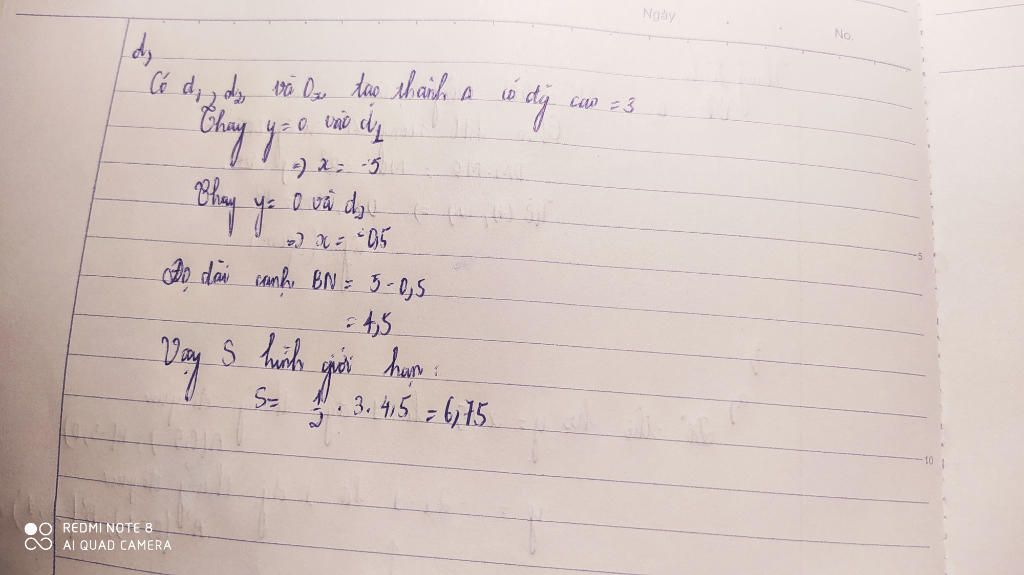 Ngày
No.
d,
Có d₁, d₂ và Ox tạo thành Δ có độ cao = 3
Thay y = 0 vào d₁
=> x = -5
Thay y = 0 và d₂
=> x = -0,5
Độ dài cạnh BN = 5 - 0,5
= 4,5
Vậy S hình giới hạn:
S = 1/2 . 3. 4,5 = 6,75
5
10
REDMI NOTE 8
AI QUAD CAMERA